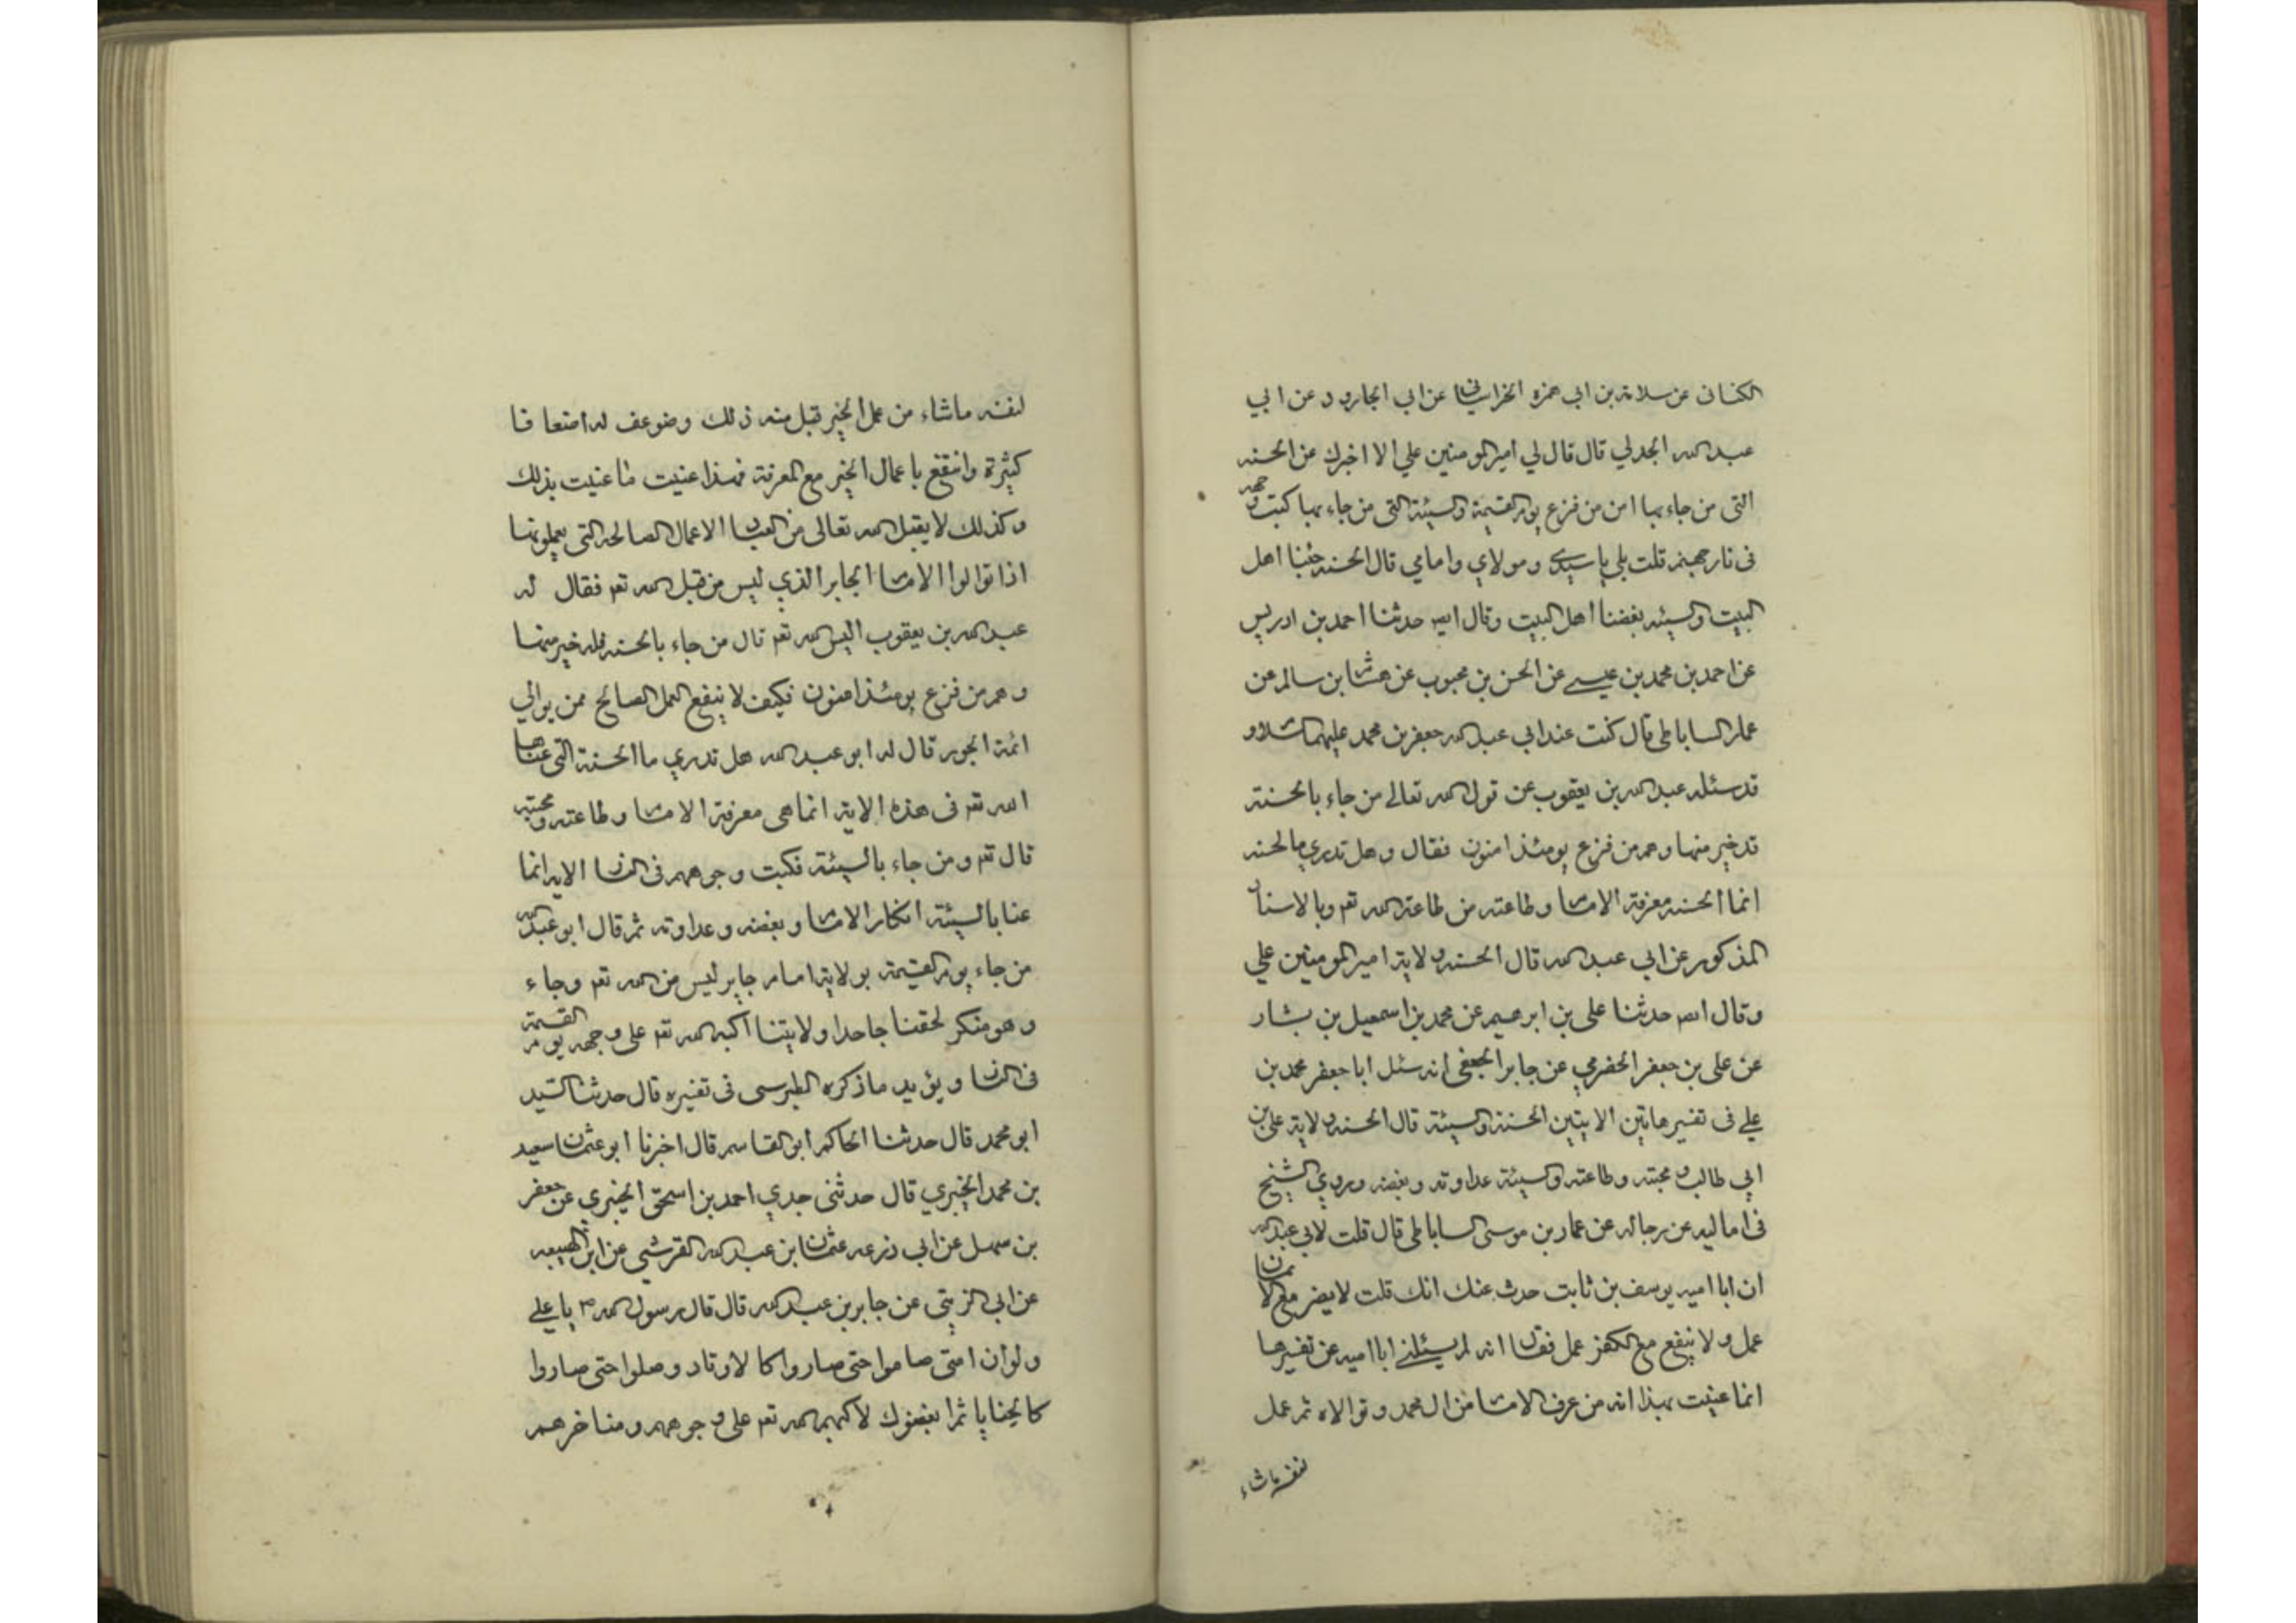 الكنانى عن سلامة بن ابى حمزه الخراسانى عن ابى الجارود عن ابي
عبد الله الجدلي قال قال لي امير المومنين علي الا اخبرك عن الحسنه
التى من جاء بها امن من فزع يوم القيمة والسيئة التى من جاء بها كبت وجهه
فى نار جهنم قلت بلى ياسيدي ومولاي وامامي قال الحسنه حبنا اهل
البيت والسيئه بغضنا اهل البيت وقال ايضا حدثنا احمد بن ادريس
عن احمد بن محمد بن عيسى عن الحسن بن محبوب عن هشام بن سالم عن
عمار الساباطى قال كنت عند ابي عبد الله جعفر بن محمد عليهما السلام و
قد سئله عبد الله بن يعقوب عن قول الله تعالى من جاء بالحسنة
قد خير منها وهم من فزع يومئذ امنون فقال وهل تدري ما لحسنه
انما الحسنه معرفة الامام وطاعته من طاعة الله تعم وبالاسناد
المذكور عن ابي عبد الله قال الحسنه ولاية امير المومنين علي
وقال ايضا حدثنا على بن ابرهيم عن محمد بن اسمعيل بن بشار
عن على بن جعفر الحضرمي عن جابر الجعفى انه سئل ابا جعفر محمد بن
علي فى تفسير هاتين الايتين الحسنة والسيئة قال الحسنه ولاية على بن
ابي طالب ومحبته وطاعته والسيئة عداوته وبغضه وروي الشيخ
فى اماليه عن رجاله عن عمار بن موسى الساباطى قال قلت لابي عبد الله
ان ابا اميه يوسف بن ثابت حدث عنك انك قلت لا يضر مع الايمان
عمل ولا ينفع مع الكفر عمل فقال انه لم يسئلنى ابا اميه عن تفسيرها
انما عنيت بهذا انه من عرف الامام من ال محمد وتوالاه ثم عمل
لنفسه ماشاء
لنفسه ماشاء من عمل الخير تقبل منه ذلك وضوعف له اضعافا
كثيرة وانتفع باعمال الخير مع المعرفة فهذا عنيت ما عنيت بذلك
وكذلك لا يقبل الله تعالى من العباد الاعمال الصالحه التى يعملونها
اذا توالوا الامام الجابر الذي ليس من قبل الله تعم فقال له
عبد الله بن يعقوب اليس الله تعم قال من جاء بالحسنه فله خير منها
وهم من فزع يومئذ امنون فكيف لا ينفع العمل الصالح ممن يوالي
ائمة الجور قال له ابو عبد الله هل تدري ما الحسنة التى عناها
الله تعم فى هذه الاية انما هى معرفة الامام وطاعته ومحبته
قال تعم ومن جاء بالسيئة فكبت وجوههم فى النار الايه انما
عنا بالسيئة انكار الامام وبغضه وعداوته ثم قال ابو عبد الله
من جاء يوم القيمة بولاية امام جاير ليس من الله تعم وجاء
وهو منكر لحقنا جاحدا ولايتنا اكبه الله تعم على وجهه يوم القيمة
فى النار ويؤيد ماذكره الطبرسى فى تفسيره قال حدثنا السيد
ابو محمد قال حدثنا الحاكم ابو القاسم قال اخبرنا ابو عثمان سعيد
بن محمد الخيبري قال حدثنى جدي احمد بن اسحق الخيبري عن جعفر
بن سهل عن ابي زرعه عثمان بن عبد الله القرشي عن ابن الهيعه
عن ابى الزبيتى عن جابر بن عبد الله قال قال رسول الله ص يا علي
ولو ان امتى صاموا حتى صاروا كا لاوتاد وصلوا حتى صاروا
كالحنايا ثم ابغضوك لاكبهم الله تعم على وجوههم ومناخرهم